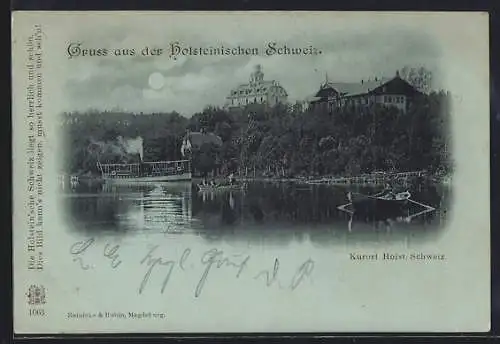 Gruss aus der Holsteinischen Schweiz.
Die Holstein'sche Schweiz liegt so herrlich und schön,
Dies Bild kann's nicht zeigen, musst kommen und seh'n!
Kurort Holst. Schweiz.
1063
Reinicke & Rubin, Magdeburg.